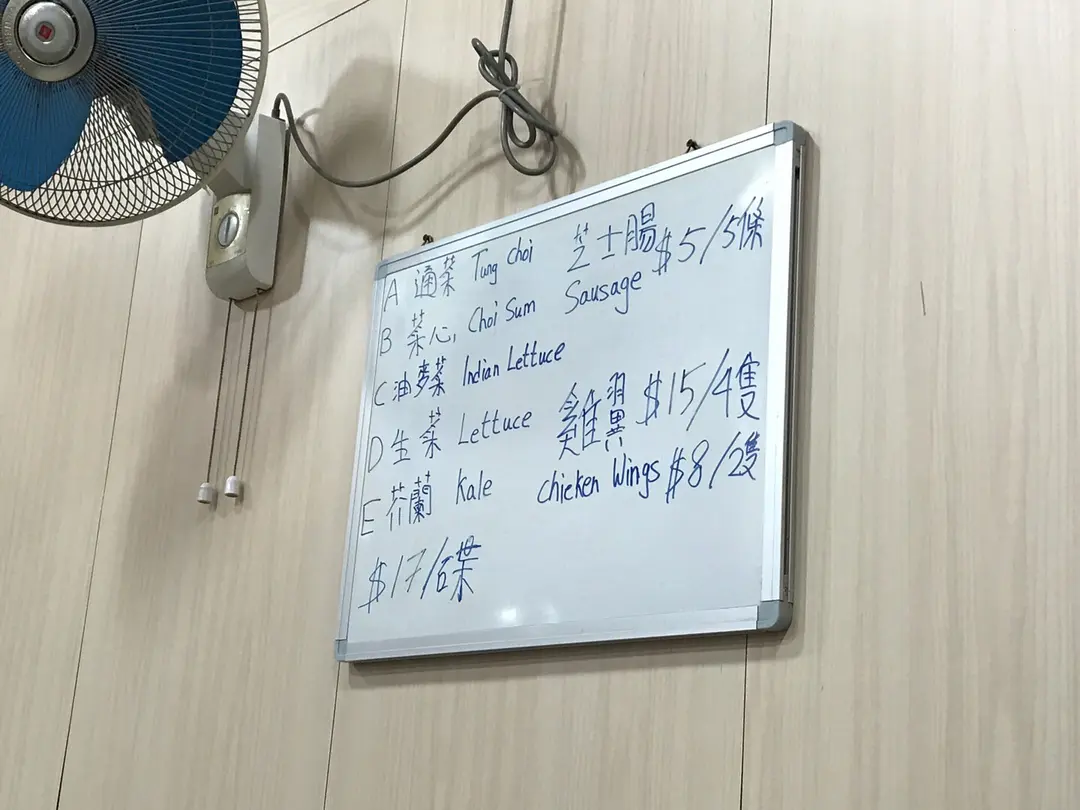 A 通菜 Tung Choi
B 菜心, Choi Sum
C 油麥菜 Indian Lettuce
D 生菜 Lettuce
E 芥蘭 Kale
$17/碟
芝士腸 $5/5條
Sausage
雞翼 $15/4隻
Chicken Wings $8/2隻